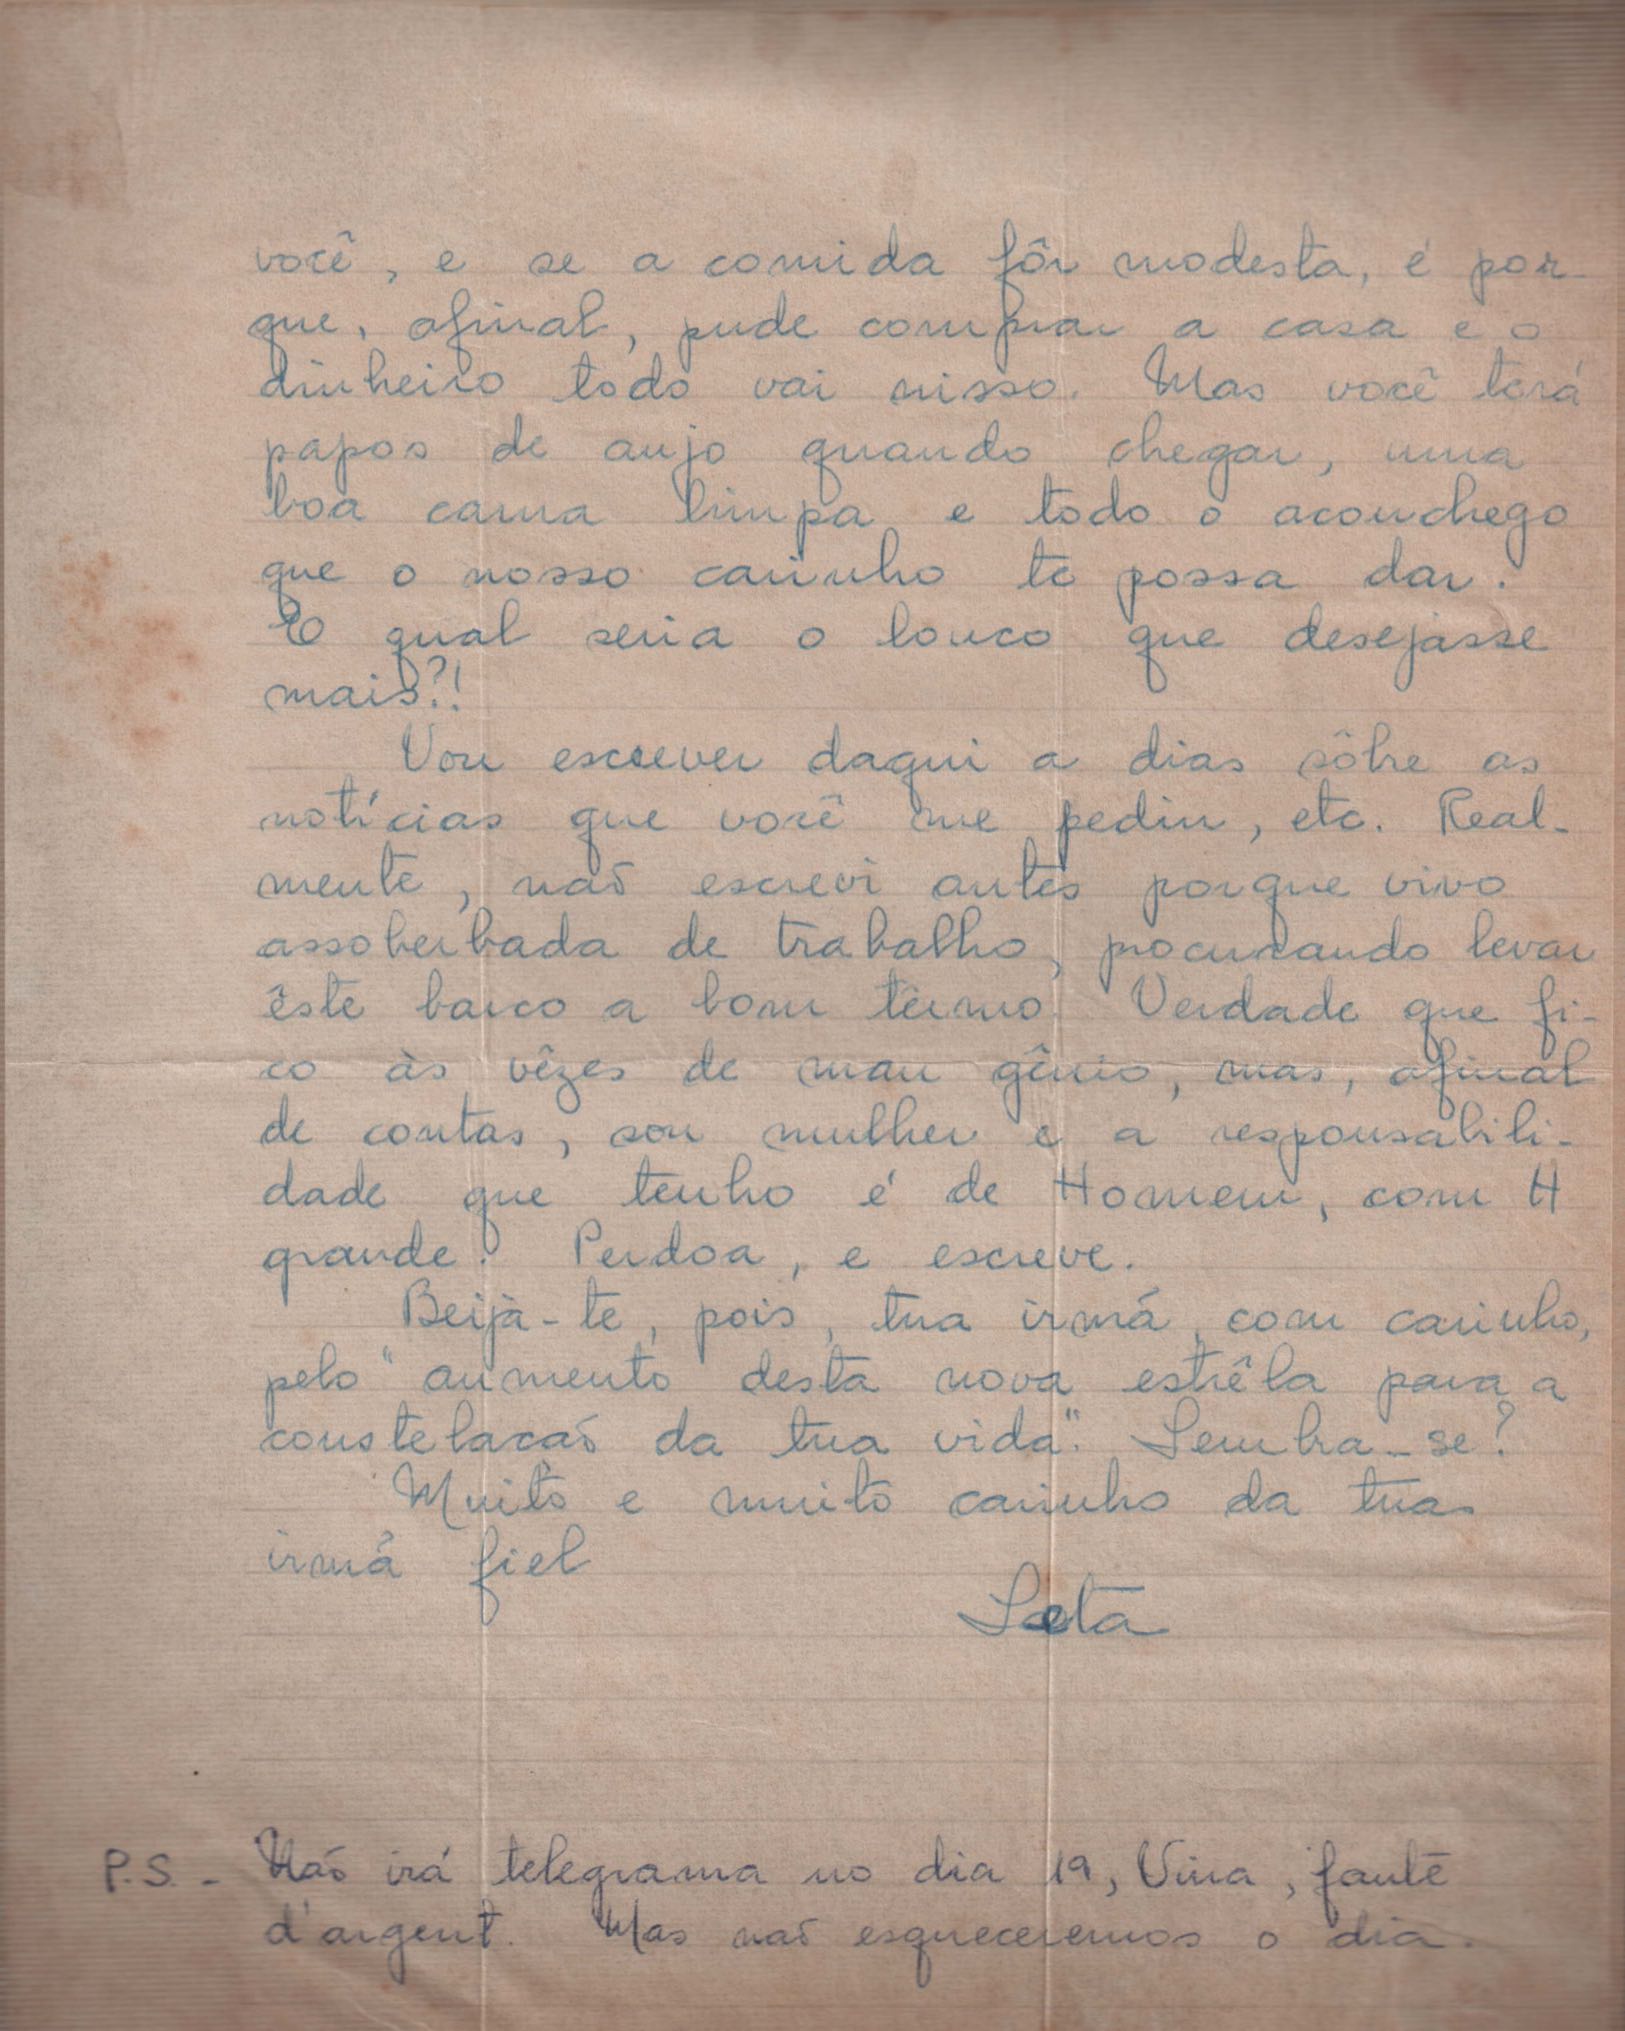 você, e se a comida fôr modesta, é por-
que, afinal, pude comprar a casa e o
dinheiro todo vai nisso. Mas você terá
papos de anjo quando chegar, uma
boa cama limpa e todo o aconchego
que o nosso carinho te possa dar.
E qual seria o louco que desejasse
mais?!
Vou escrever daqui a dias sôbre as
notícias que você me pediu, etc. Real-
mente, não escrevi antes porque vivo
assoberbada de trabalho, procurando levar
êste barco a bom têrmo. Verdade que fi-
co às vêzes de mau gênio, mas, afinal
de contas, sou mulher e a responsabili-
dade que tenho é de Homem, com H
grande! Perdoa, e escreve.
Beija-te, pois, tua irmã, com carinho,
pelo "aumento desta nova estrêla para a
constelação da tua vida". Lembra-se?
Muito e muito carinho da tua
irmã fiel
Lota
P.S. - Não irá telegrama no dia 19, Vina, faute
d'argent. Mas não esqueceremos o dia.